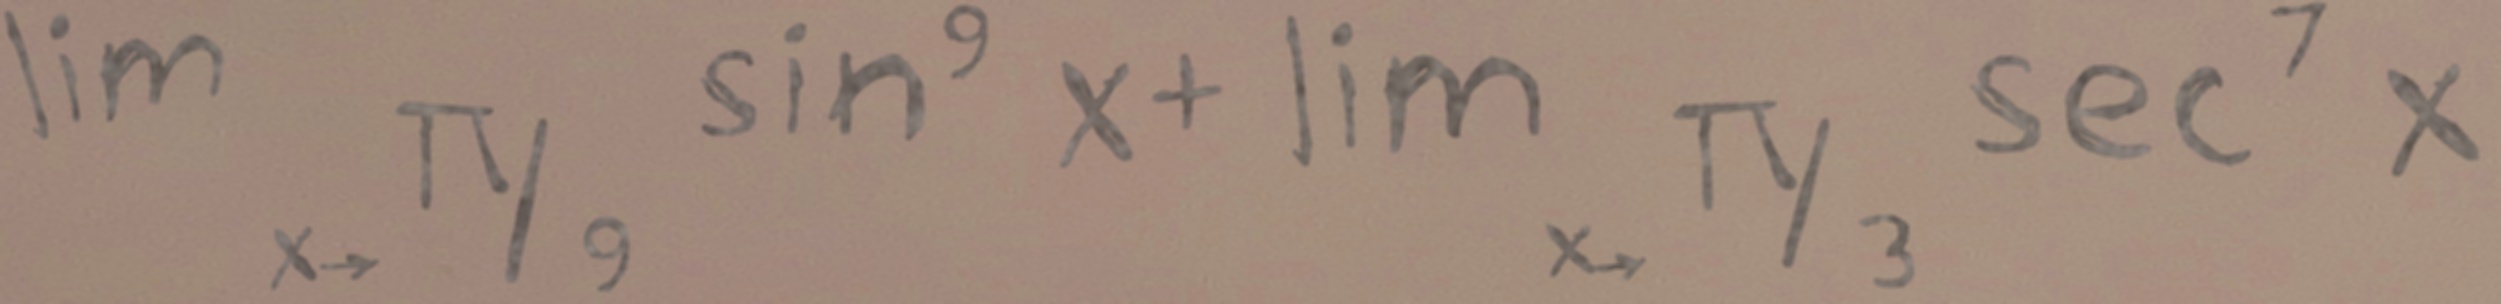 lim x→π/9 sin⁹ x + lim x→π/3 sec⁷ x